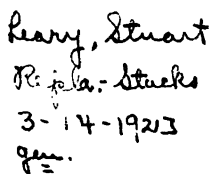 Leary, Stuart
Stucks
3-14-1923
gen.